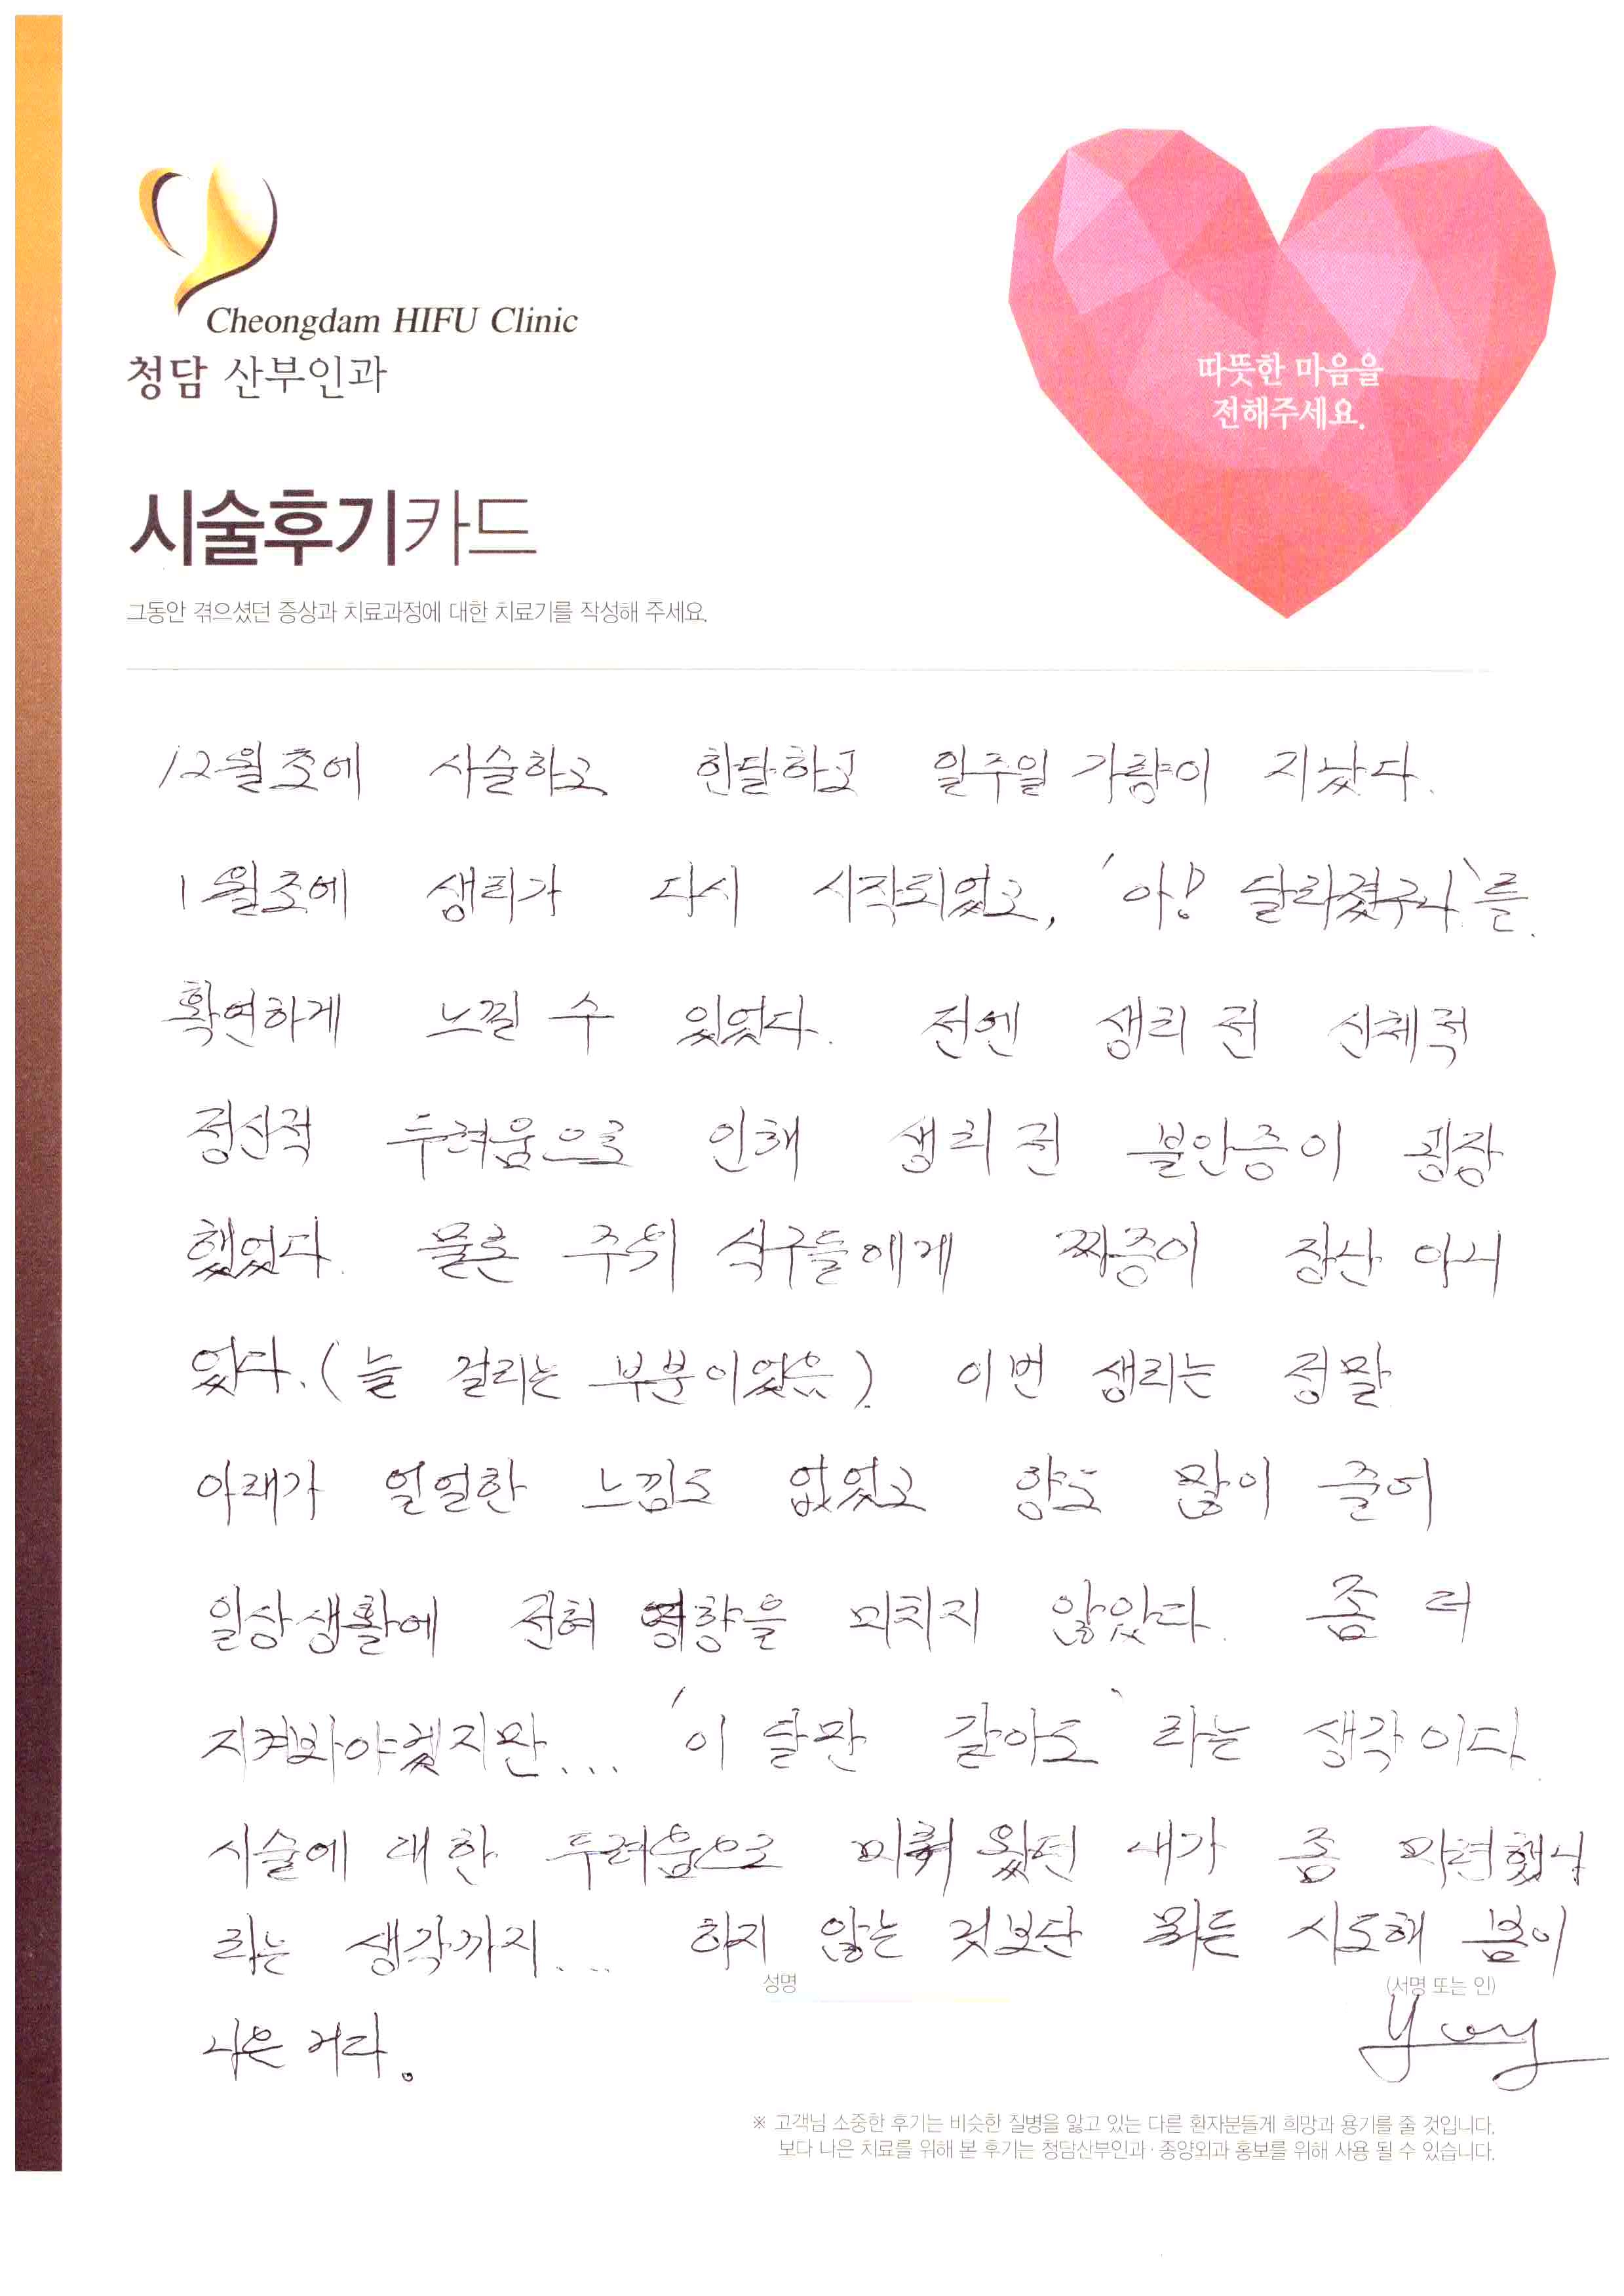 Cheongdam HIFU Clinic
청담 산부인과
따뜻한 마음을
전해주세요.
시술후기카드
그동안 겪으셨던 증상과 치료과정에 대한 치료기를 작성해 주세요.
12월초에 사술하고 한달하고 일주일 가량이 지났다.
1월초에 생리가 다시 시작되었고, '아! 달라졌구나'를
확연하게 느낄 수 있었다. 전엔 생리 전 신체적
정신적 두려움으로 인해 생리 전 불안증이 굉장
했었다. 물론 주위 식구들에게 짜증이 장난 아니
었다. (늘 걸리는 부분이었음) 이번 생리는 정말
아래가 얼얼한 느낌도 없었고 양도 많이 줄어
일상생활에 전혀 영향을 미치지 않았다. 좀 더
지켜봐야겠지만... '이 달만 같아도' 라는 생각이다
시술에 대한 두려움으로 미뤄 왔던 내가 좀 미련했나
라는 생각까지... 하지 않는 것보단 뭐든 시도해 봄이
성명
(서명 또는 인)
나은 거다.
※ 고객님 소중한 후기는 비슷한 질병을 앓고 있는 다른 환자분들게 희망과 용기를 줄 것입니다.
보다 나은 치료를 위해 본 후기는 청담산부인과·종양외과 홍보를 위해 사용 될 수 있습니다.